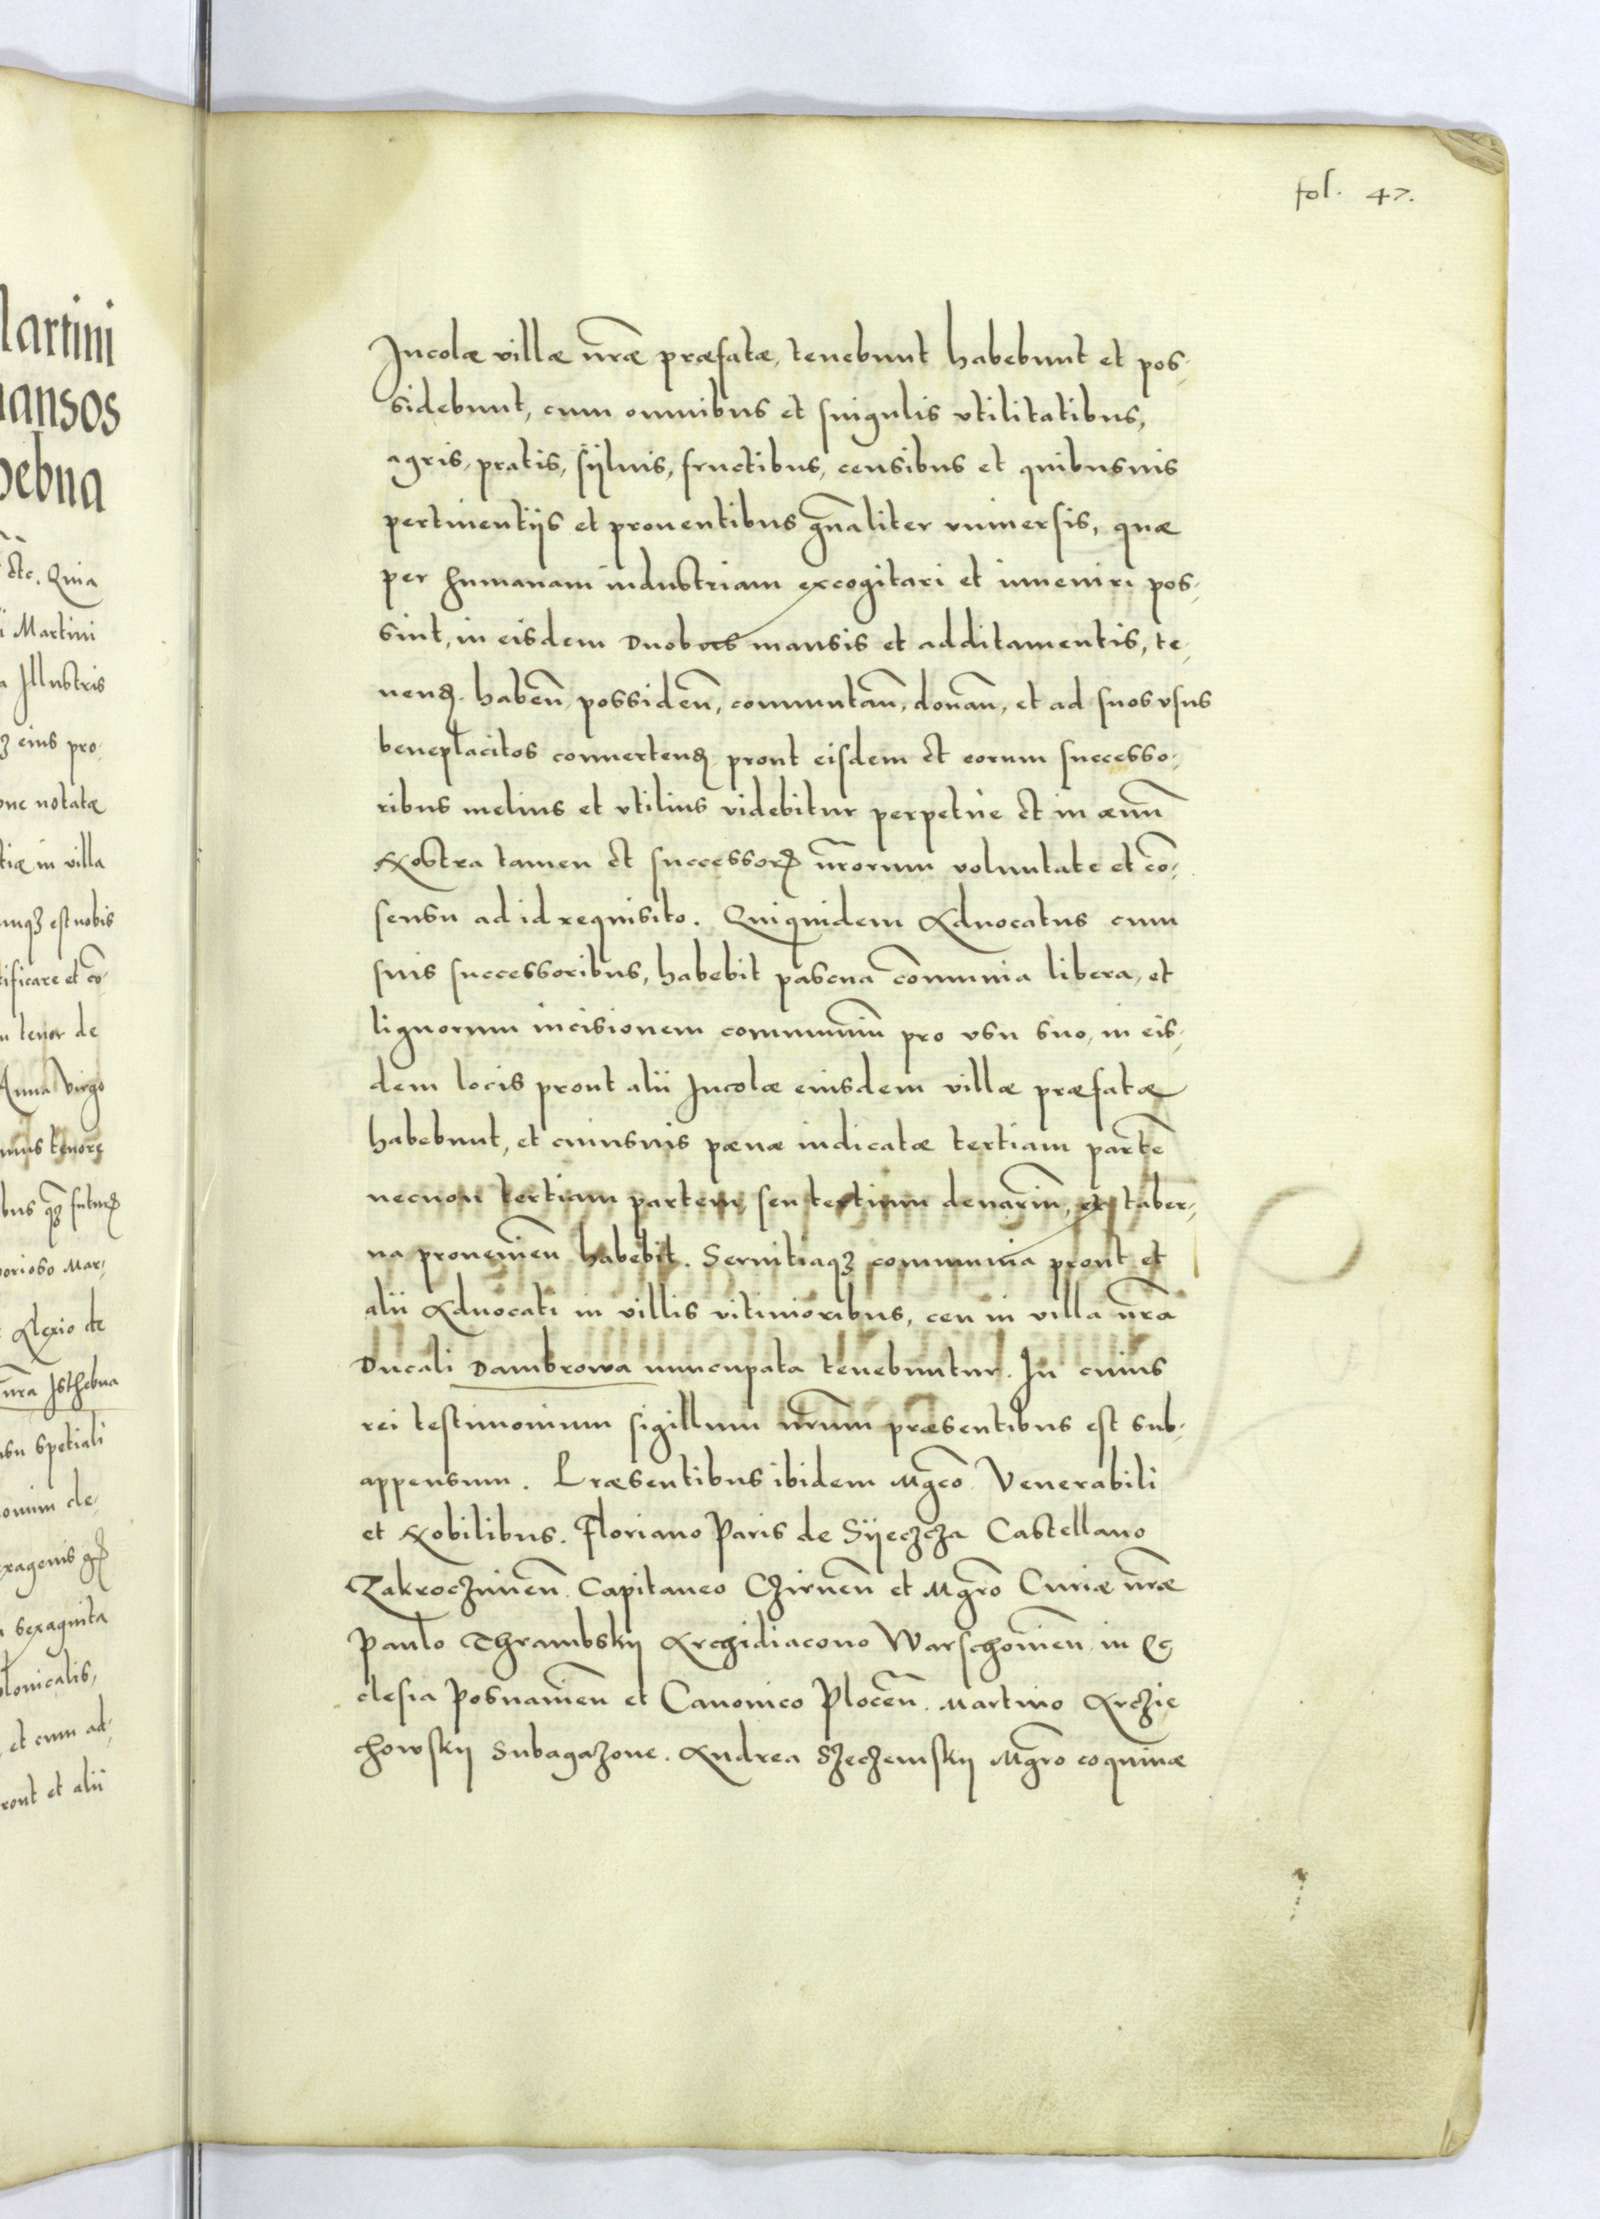 lartini
ansos
ebna
etc. Quia
i Martini
a Illustris
eius pro-
one notatæ
tiæ in villa
est nobis
tificare et cõ-
tenor de
Anna Virgo
tenore
bus qꝫ futurꝝ
orioso Mar-
Alexio de
nr̃a Isthebna
su spetiali
omim de-
sexaginta
olonicalis,
et cum ad-
ront et alii
fol. 47.
Incolæ villæ nr̃æ præfatæ, tenebunt habebunt et pos-
sidebunt, cum omnibus et singulis vtilitatibus,
agris, pratis, sÿluis, fructibus, censibus et quibusuis
pertinentijs et prouentibus gñaliter vniuersis, quæ
per humanam industriam excogitari et inueniri pos-
sint, in eisdem duobus mansis et additamentis, te-
nenꝝ. habeñ, possideñ, commutañ, donañ, et ad suos vsus
beneplacitos conuertenꝝ prout eisdem et eorum successo-
ribus melius et vtilius videbitur perpetue et in æuũ
Nostra tamen et successorꝝ nr̃orum voluntate et cõ-
sensu ad id requisito. Quiquidem Aduocatus cum
suis successoribus, habebit pascua cõmunia libera, et
lignorum incisionem communiũ pro vsu suo, in eis-
dem locis prout alii Incolæ eiusdem villæ præfatæ
habebunt, et cuiusuis pænæ iudicatæ tertiam partẽ
necnon tertiam partem, seu tertium denariũ, ex taber-
na proueniẽn habebit. Seruitiaqꝫ communia prout et
alii Aduocati in villis vitimioribus, ceu in villa nr̃a
Ducali Dambrowa nuncupata tenebuntur. In cuius
rei testimonium sigillum nr̃um præsentibus est sub-
appensum. Præsentibus ibidem Mgcõ Venerabili
et Nobilibus. Floriano Paris de Sÿeczcza Castellano
Zakrocziniẽn Capitaneo Czirneñ et Mgr̃o Curiæ nr̃æ
Paulo Thrambskij Archidiacono Warschouiẽn in Ec
clesia Posnaniẽn et Canonico Plocẽn. Martino Arczie
chowskij Subagazone. Andrea Szeczemskij Mgr̃o coquinæ